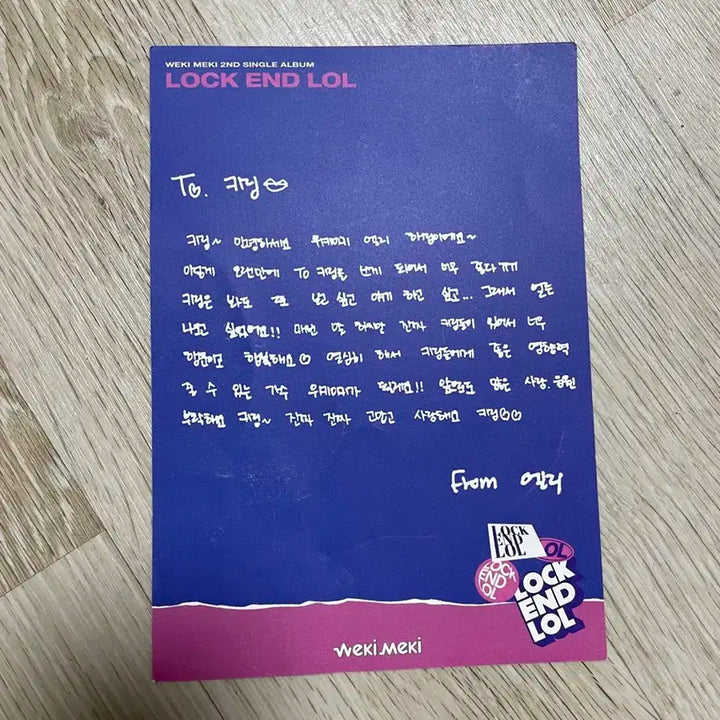 WEKI MEKI 2ND SINGLE ALBUM
LOCK END LOL
To. 키링
키링~ 안녕하세요 위키미키 엘리 해림이에요~
이렇게 오랜만에 To 키링을 쓰게 되어서 너무 좋다ㅠㅠ
키링은 봐도 또 보고 싶고 얘기 하고 싶고... 그래서 얼른
나오고 싶었어요!! 매번 말 하지만 진짜 키링들이 있어서 너무
힘이고 행복해요 열심히 해서 키링들에게 좋은 영향력
줄 수 있는 가수 위키미키가 될게요!! 앞으로도 많은 사랑. 응원
부탁해요 키링~ 진짜 진짜 고맙고 사랑해요 키링♡♡
From 엘리
LOCK
END
LOL
OL
LOCK
END
LOL
LOCK
END
LOL
weki meki